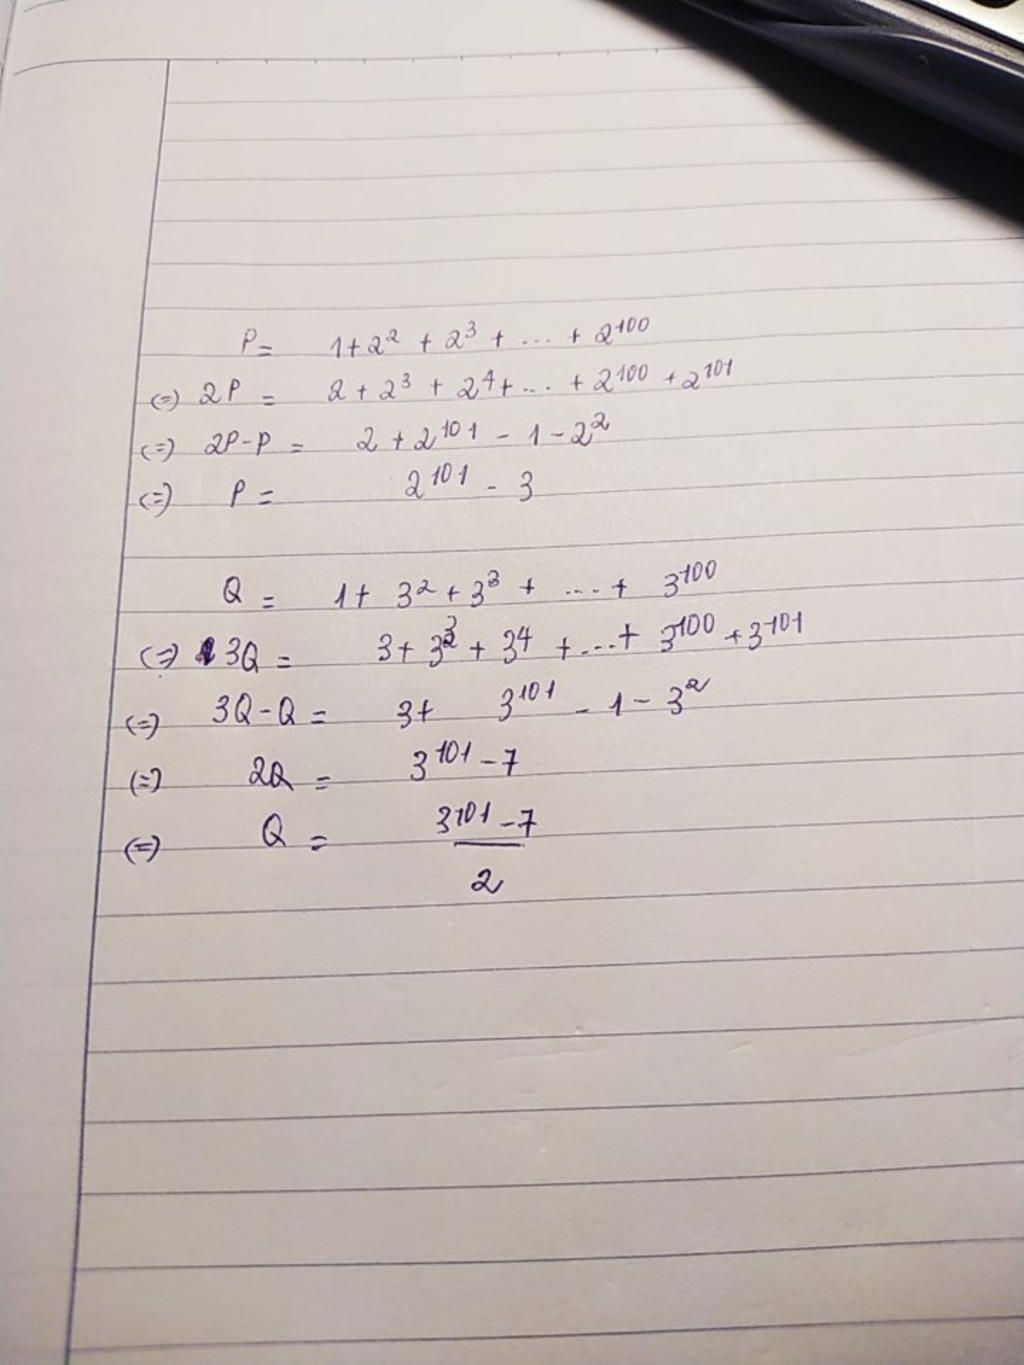 P = 1 + 2² + 2³ + ... + 2¹⁰⁰
(=) 2P = 2 + 2³ + 2⁴ + ... + 2¹⁰⁰ + 2¹⁰¹
(=) 2P - P = 2 + 2¹⁰¹ - 1 - 2²
(=) P = 2¹⁰¹ - 3
Q = 1 + 3² + 3³ + .... + 3¹⁰⁰
(=) 3Q = 3 + 3³ + 3⁴ + ... + 3¹⁰⁰ + 3¹⁰¹
(=) 3Q - Q = 3 + 3¹⁰¹ - 1 - 3²
(=) 2Q = 3¹⁰¹ - 7
(=) Q = 3¹⁰¹ - 7
2